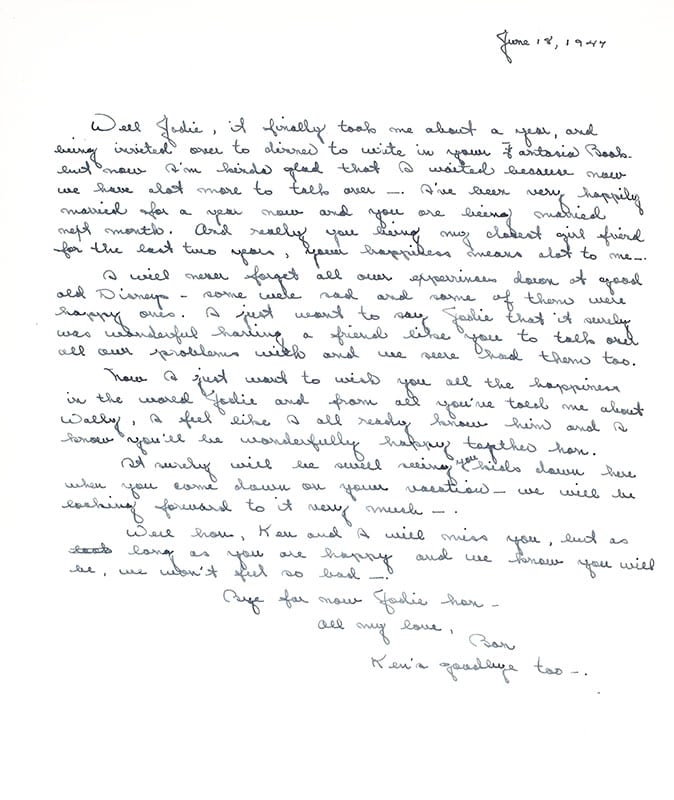 June 18, 1947
Well Jodie, it finally took me about a year, and
being invited over to dinner to write in your Fantasia Book.
but now I'm kinda glad that I waited because now
we have alot more to talk over —. I've been very happily
married for a year now and you are being married
next month. And really you being my closest girl friend
for the last two years, your happiness means alot to me —.
I will never forget all our experiences down at good
old Disneys — some were sad and some of them were
happy ones. I just want to say Jodie that it surely
was wonderful having a friend like you to talk over
all our problems with and we sure had them too.
Now I just want to wish you all the happiness
in the world Jodie and from all you've told me about
Wally, I feel like I all ready know him and I
know you'll be wonderfully happy together hon.
It surely will be swell seeing you kids down here
when you come down on your vacation — we will be
looking forward to it very much —.
Well hon, Ken and I will miss you, but as
long as you are happy and we know you will
be, we won't feel so bad —.
Bye for now Jodie hon —
All my love,
Bar
Ken's goodbye too —.